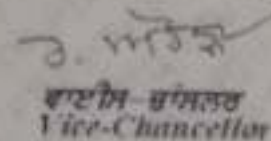 ਵਾਈਸ-ਚਾਂਸਲਰ
Vice-Chancellor